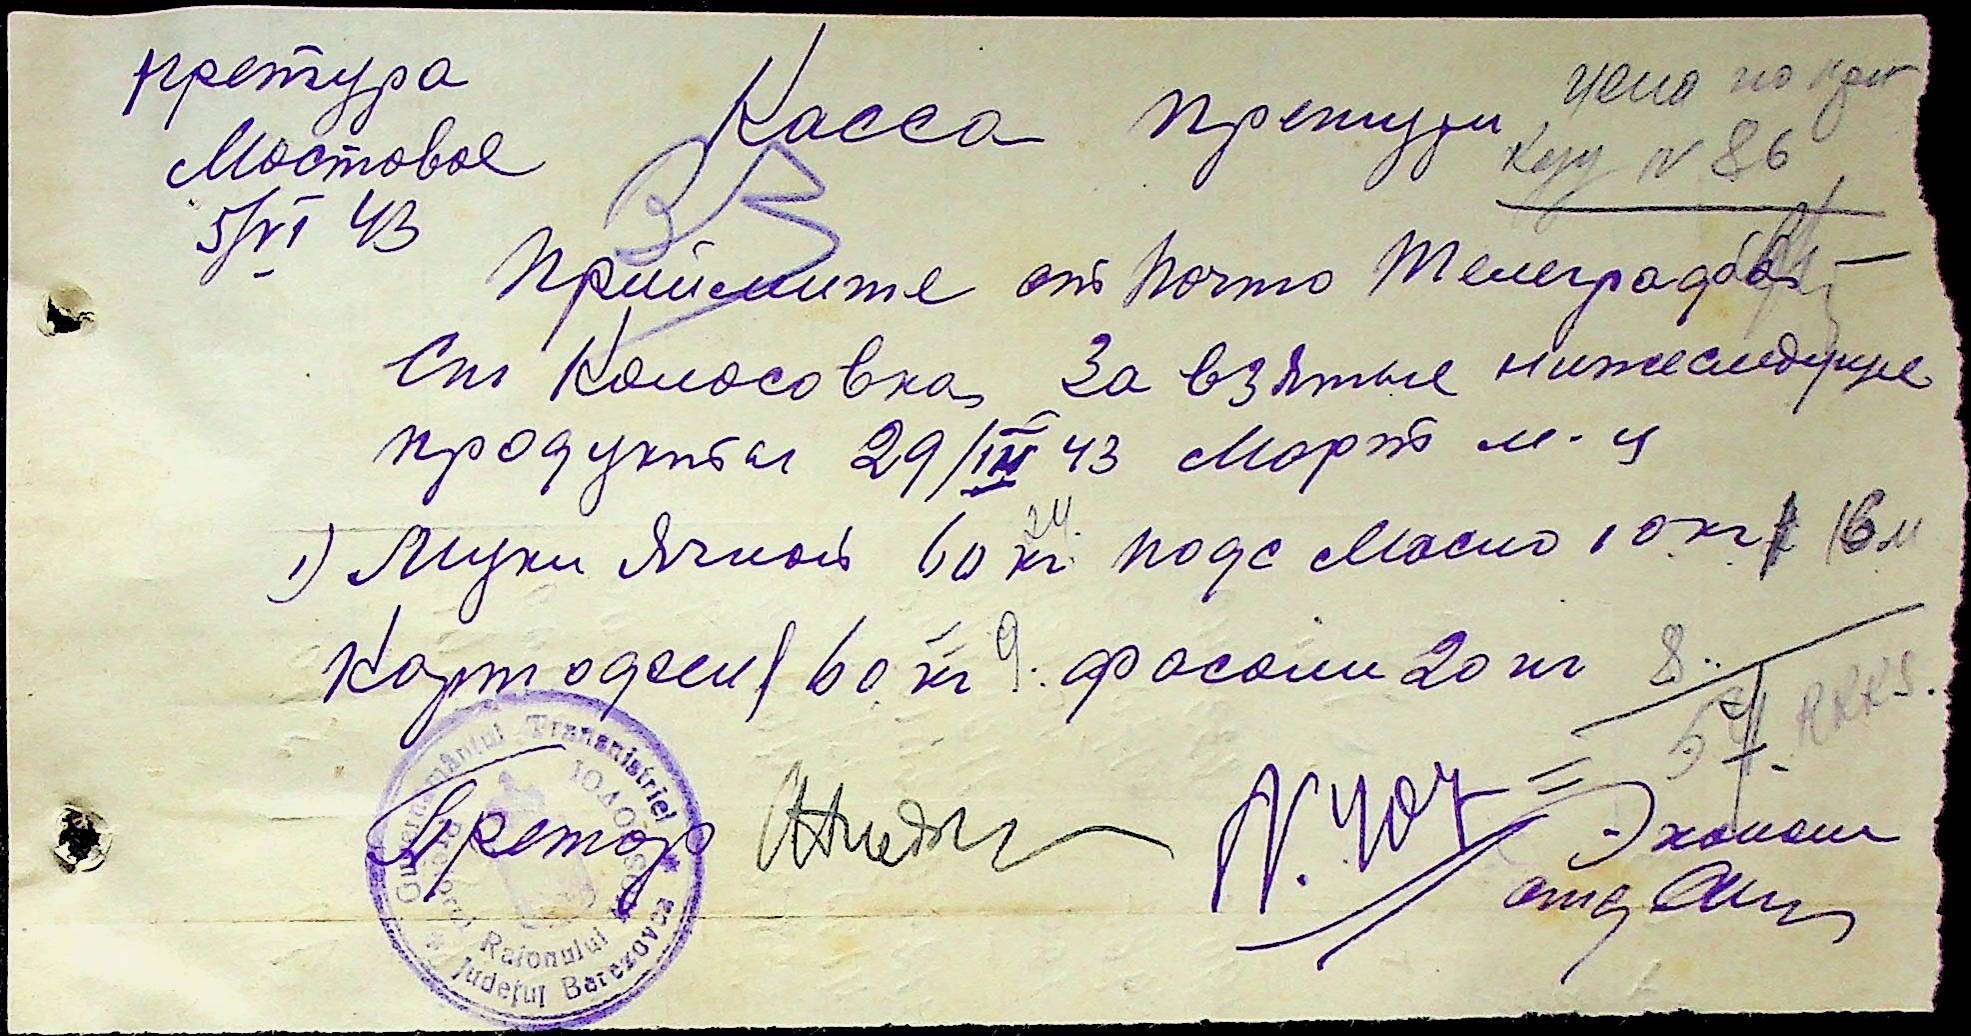 претура
Мостовое
5/VI 43
Касса претуры
цена по
N 86
Приймите от Почто Телеграфа
Ст Колосовка, За взятые нижеследущие
продукты 29/III 43 Март м-ц
1) Муки Ячной 60 кг 24. подс Масло 10 кг 16 м
Картофеля 60 кг 9. фасоли 20 кг 8..
54.
Претор
Эконом
отд
Guvernământul Transnistriei
Pretorul Raionului
Județul Barezovca